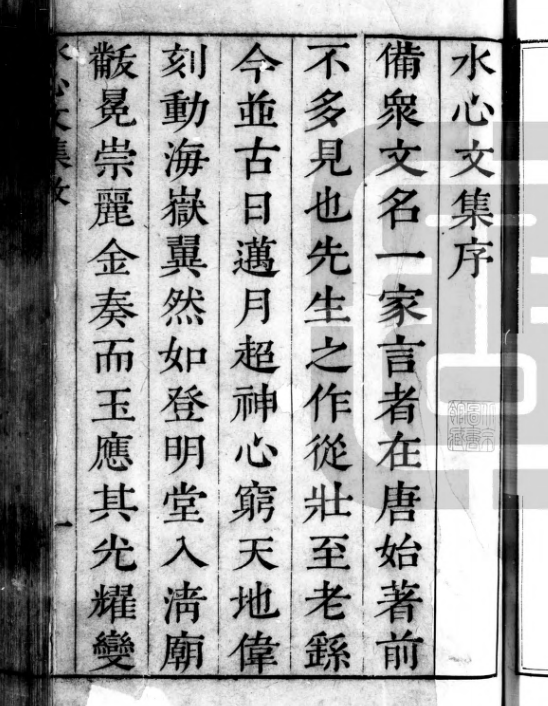 水心文集序
備衆文名一家言者在唐始著前
不多見也先生之作從壯至老繇
今並古日邁月超神心窮天地偉
刻動海嶽巽然如登明堂入淸廟
黻冕崇麗金奏而玉應其光耀變
水心文集敘
一